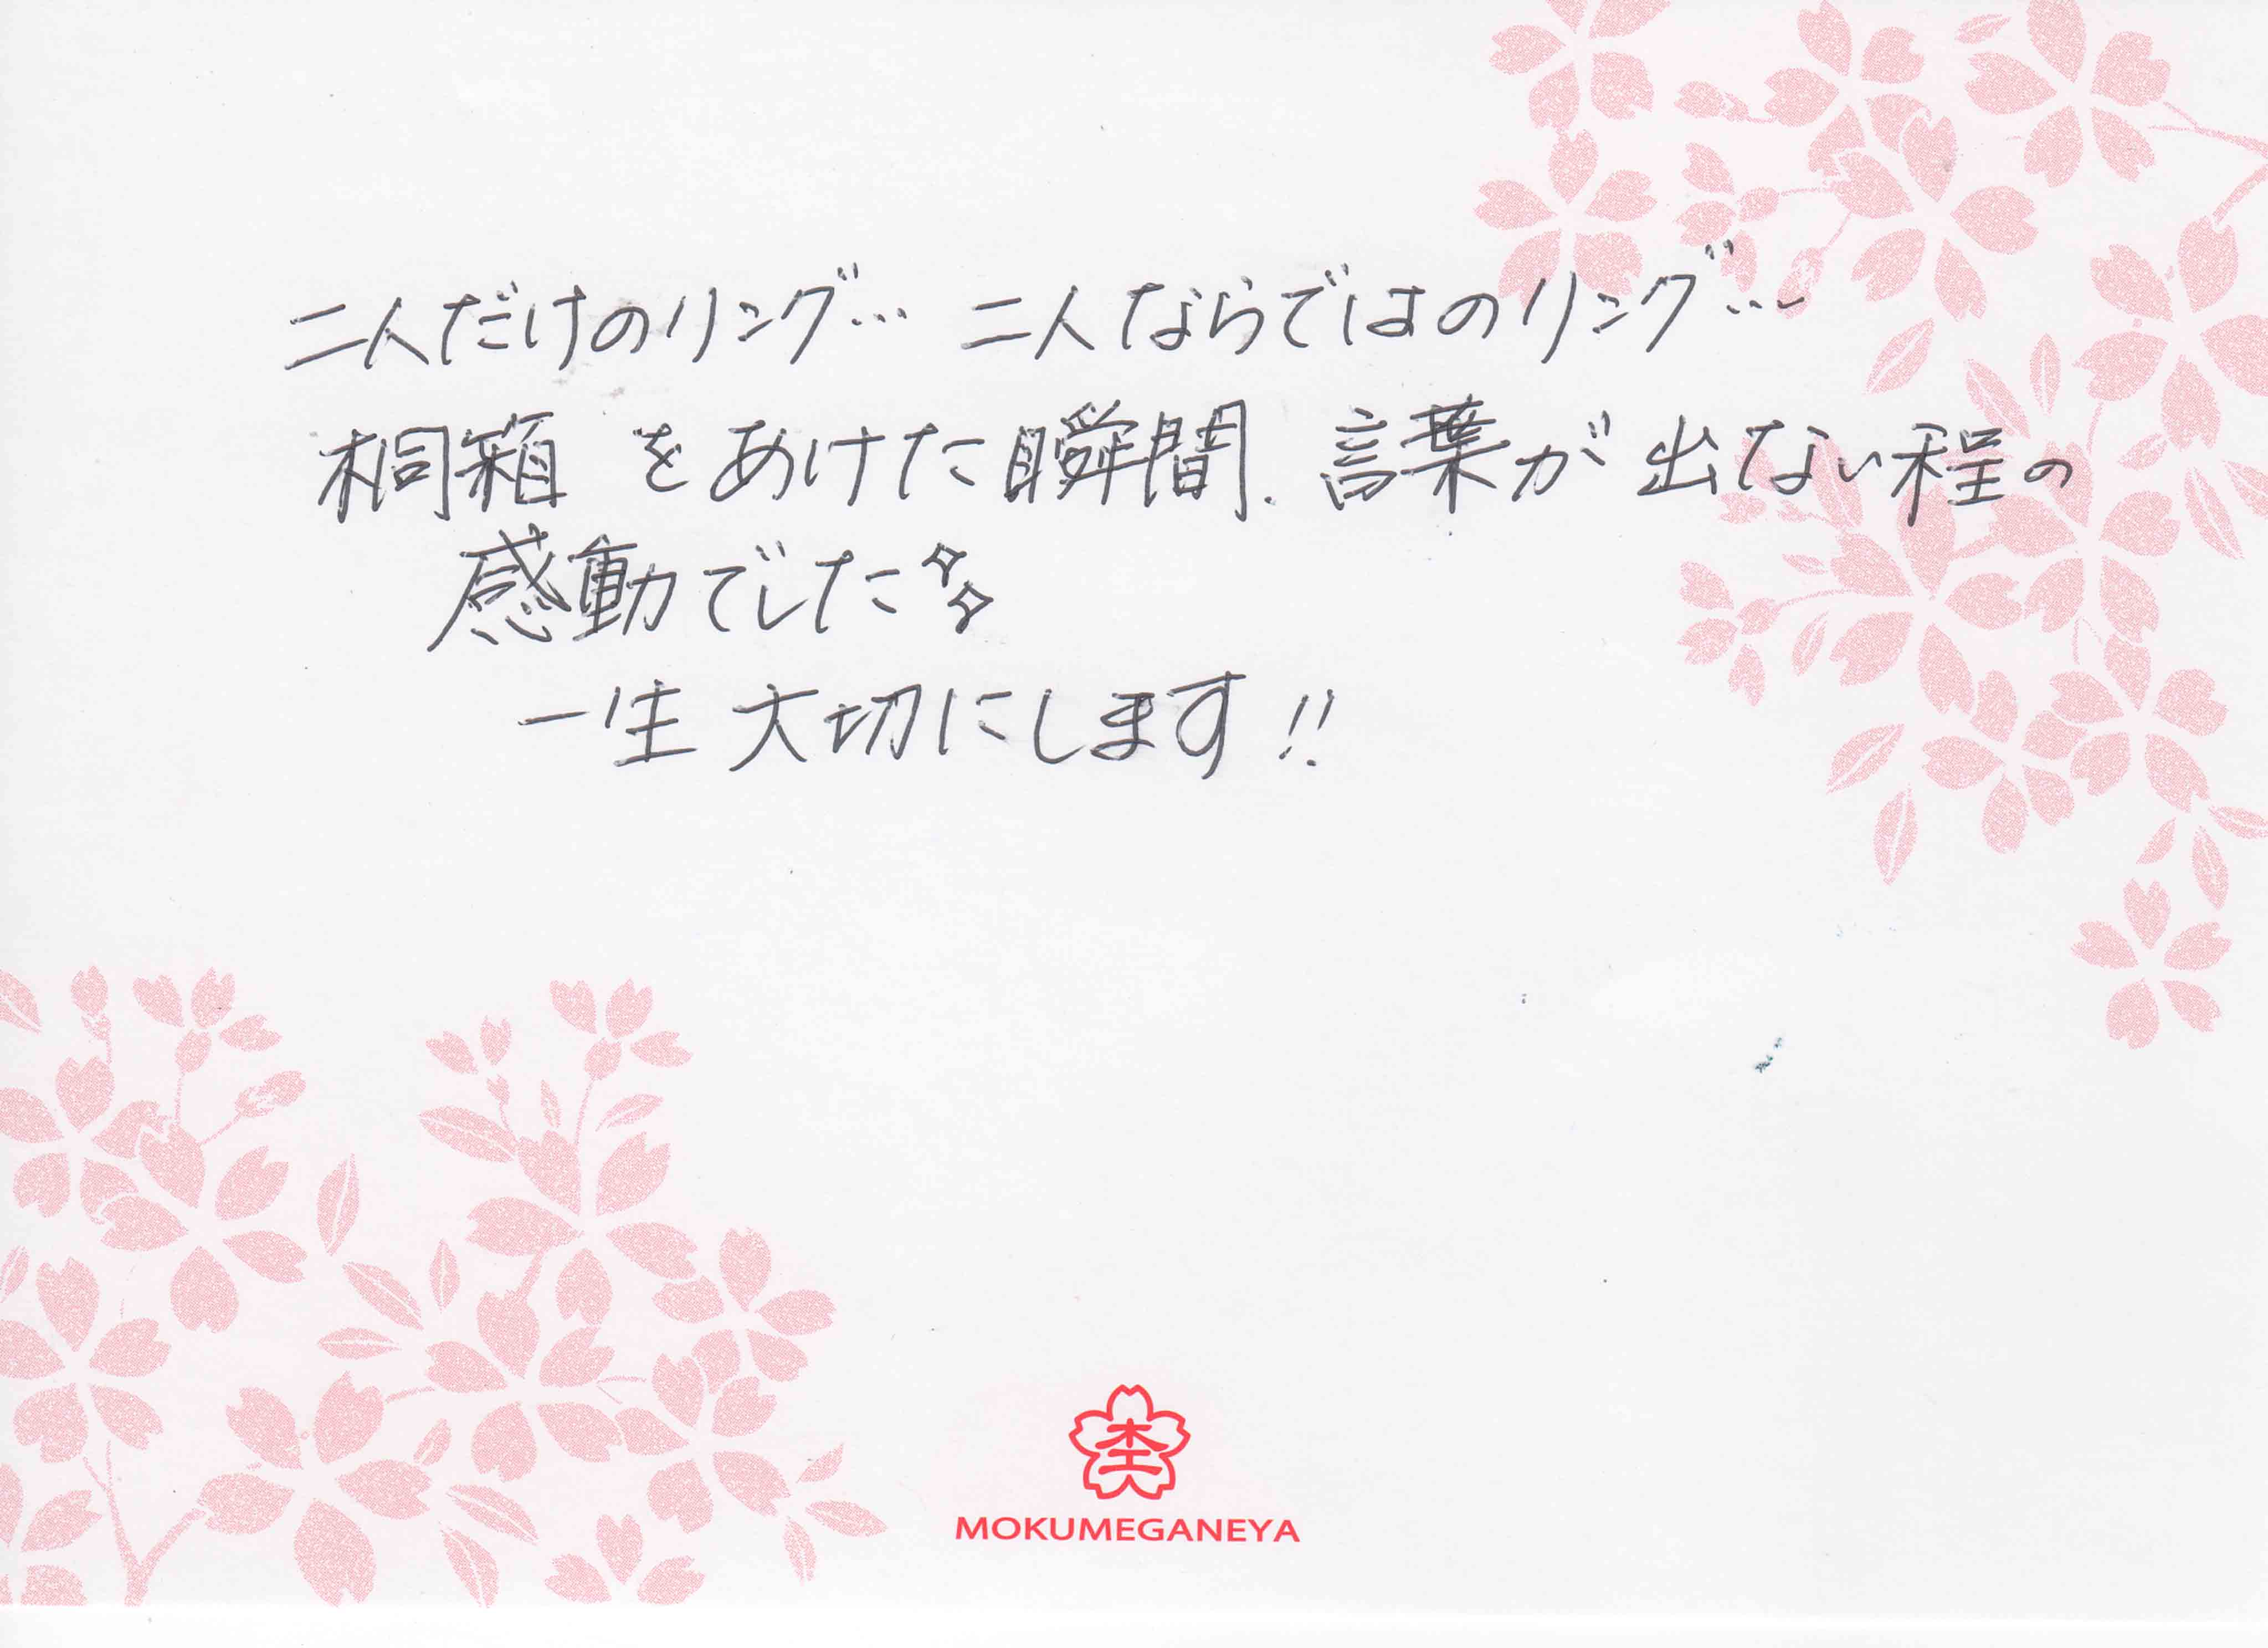 二人だけのリング… 二人ならではのリング…
桐箱をあけた瞬間、言葉が出ない程の
感動でした
一生大切にします!!
杢
MOKUMEGANEYA